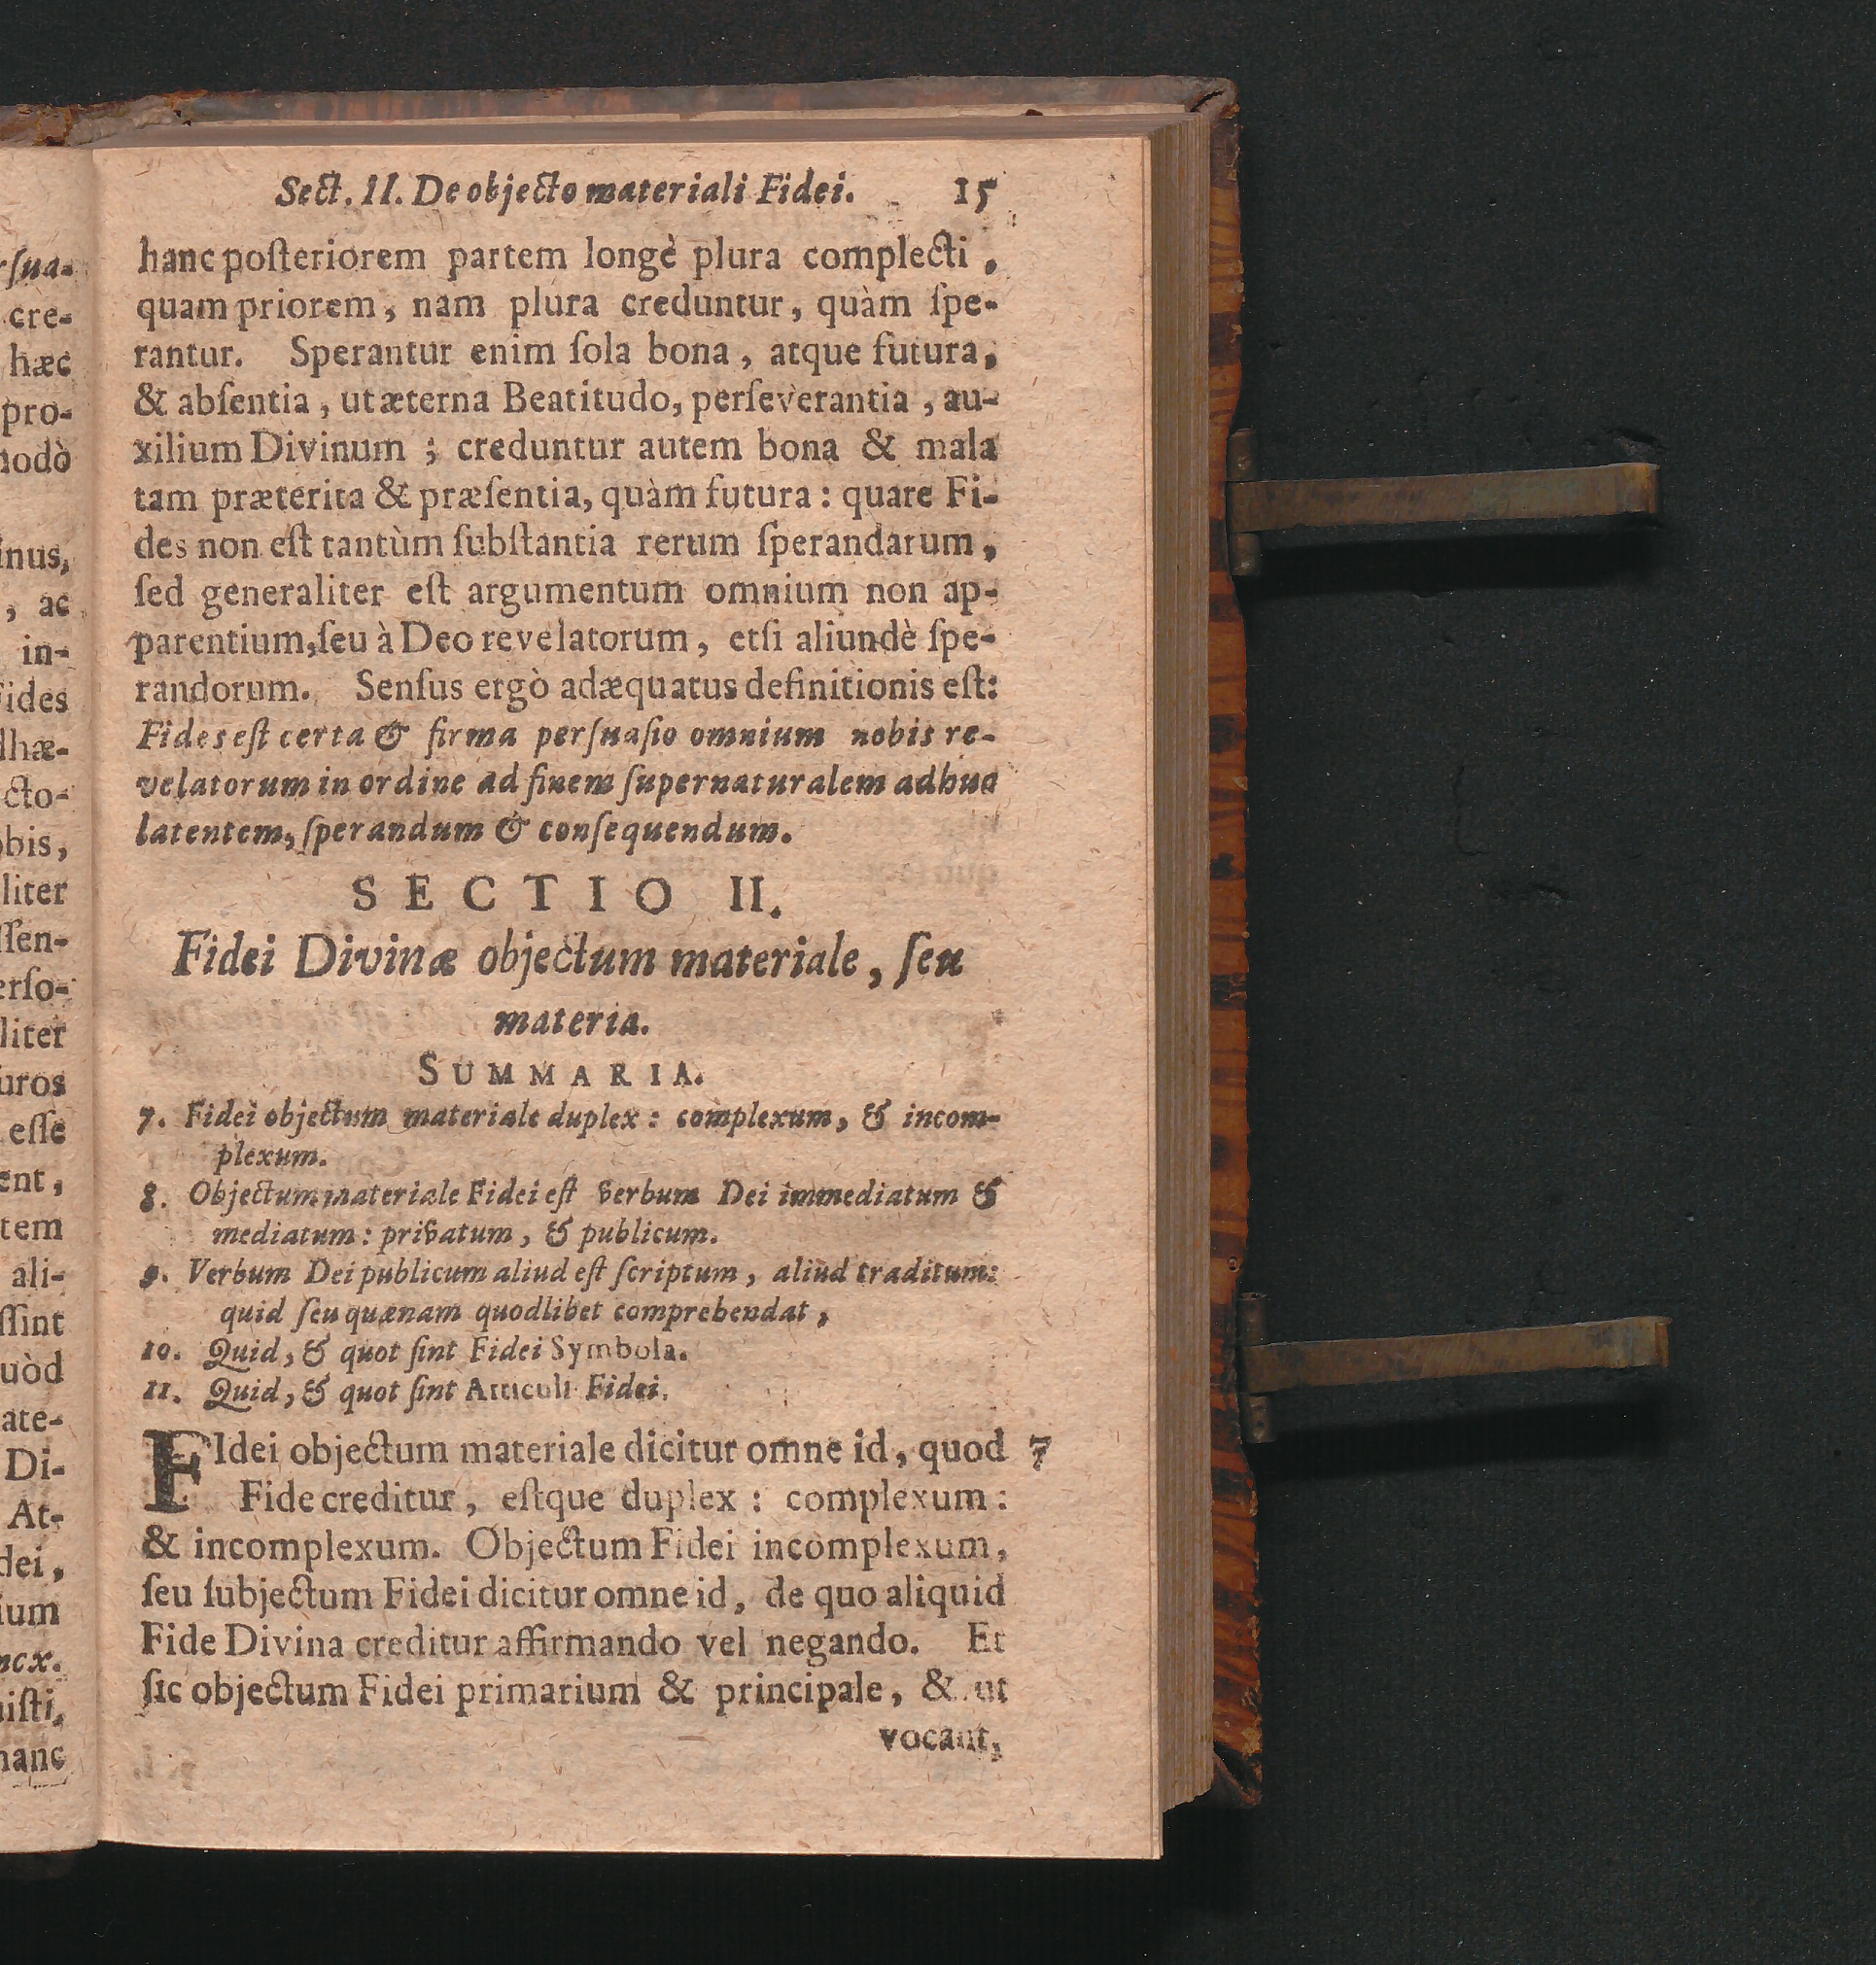 Sect. II. De objecto materiali Fidei. 15
hanc posteriorem partem longè plura complecti,
quam priorem, nam plura creduntur, quàm ſpe-
rantur. Sperantur enim ſola bona, atque futura,
& abſentia, ut æterna Beatitudo, perſeverantia, au-
xilium Divinum; creduntur autem bona & mala
tam præterita & præſentia, quàm futura: quare Fi-
des non eſt tantùm ſubſtantia rerum ſperandarum,
ſed generaliter eſt argumentum omnium non ap-
parentium, ſeu à Deo revelatorum, etſi aliundè ſpe-
randorum. Senſus ergò adæquatus definitionis eſt:
Fides eſt certa & firma perſuaſio omnium nobis re-
velatorum in ordine ad finem ſupernaturalem adhuc
latentem, ſperandum & conſequendum.
SECTIO II.
Fidei Divinæ objectum materiale, ſeu
materia.
SUMMARIA.
7. Fidei objectum materiale duplex: complexum, & incom-
plexum.
8. Objectum materiale Fidei eſt verbum Dei immediatum &
mediatum: privatum, & publicum.
9. Verbum Dei publicum aliud eſt ſcriptum, aliud traditum:
quid ſeu quænam quodlibet comprehendat,
10. Quid, & quot ſint Fidei Symbola.
11. Quid, & quot ſint Articuli Fidei.
FIdei objectum materiale dicitur omne id, quod 7
Fide creditur, eſtque duplex: complexum:
& incomplexum. Objectum Fidei incomplexum,
ſeu ſubjectum Fidei dicitur omne id, de quo aliquid
Fide Divina creditur affirmando vel negando. Et
ſic objectum Fidei primarium & principale, & ut
vocant,